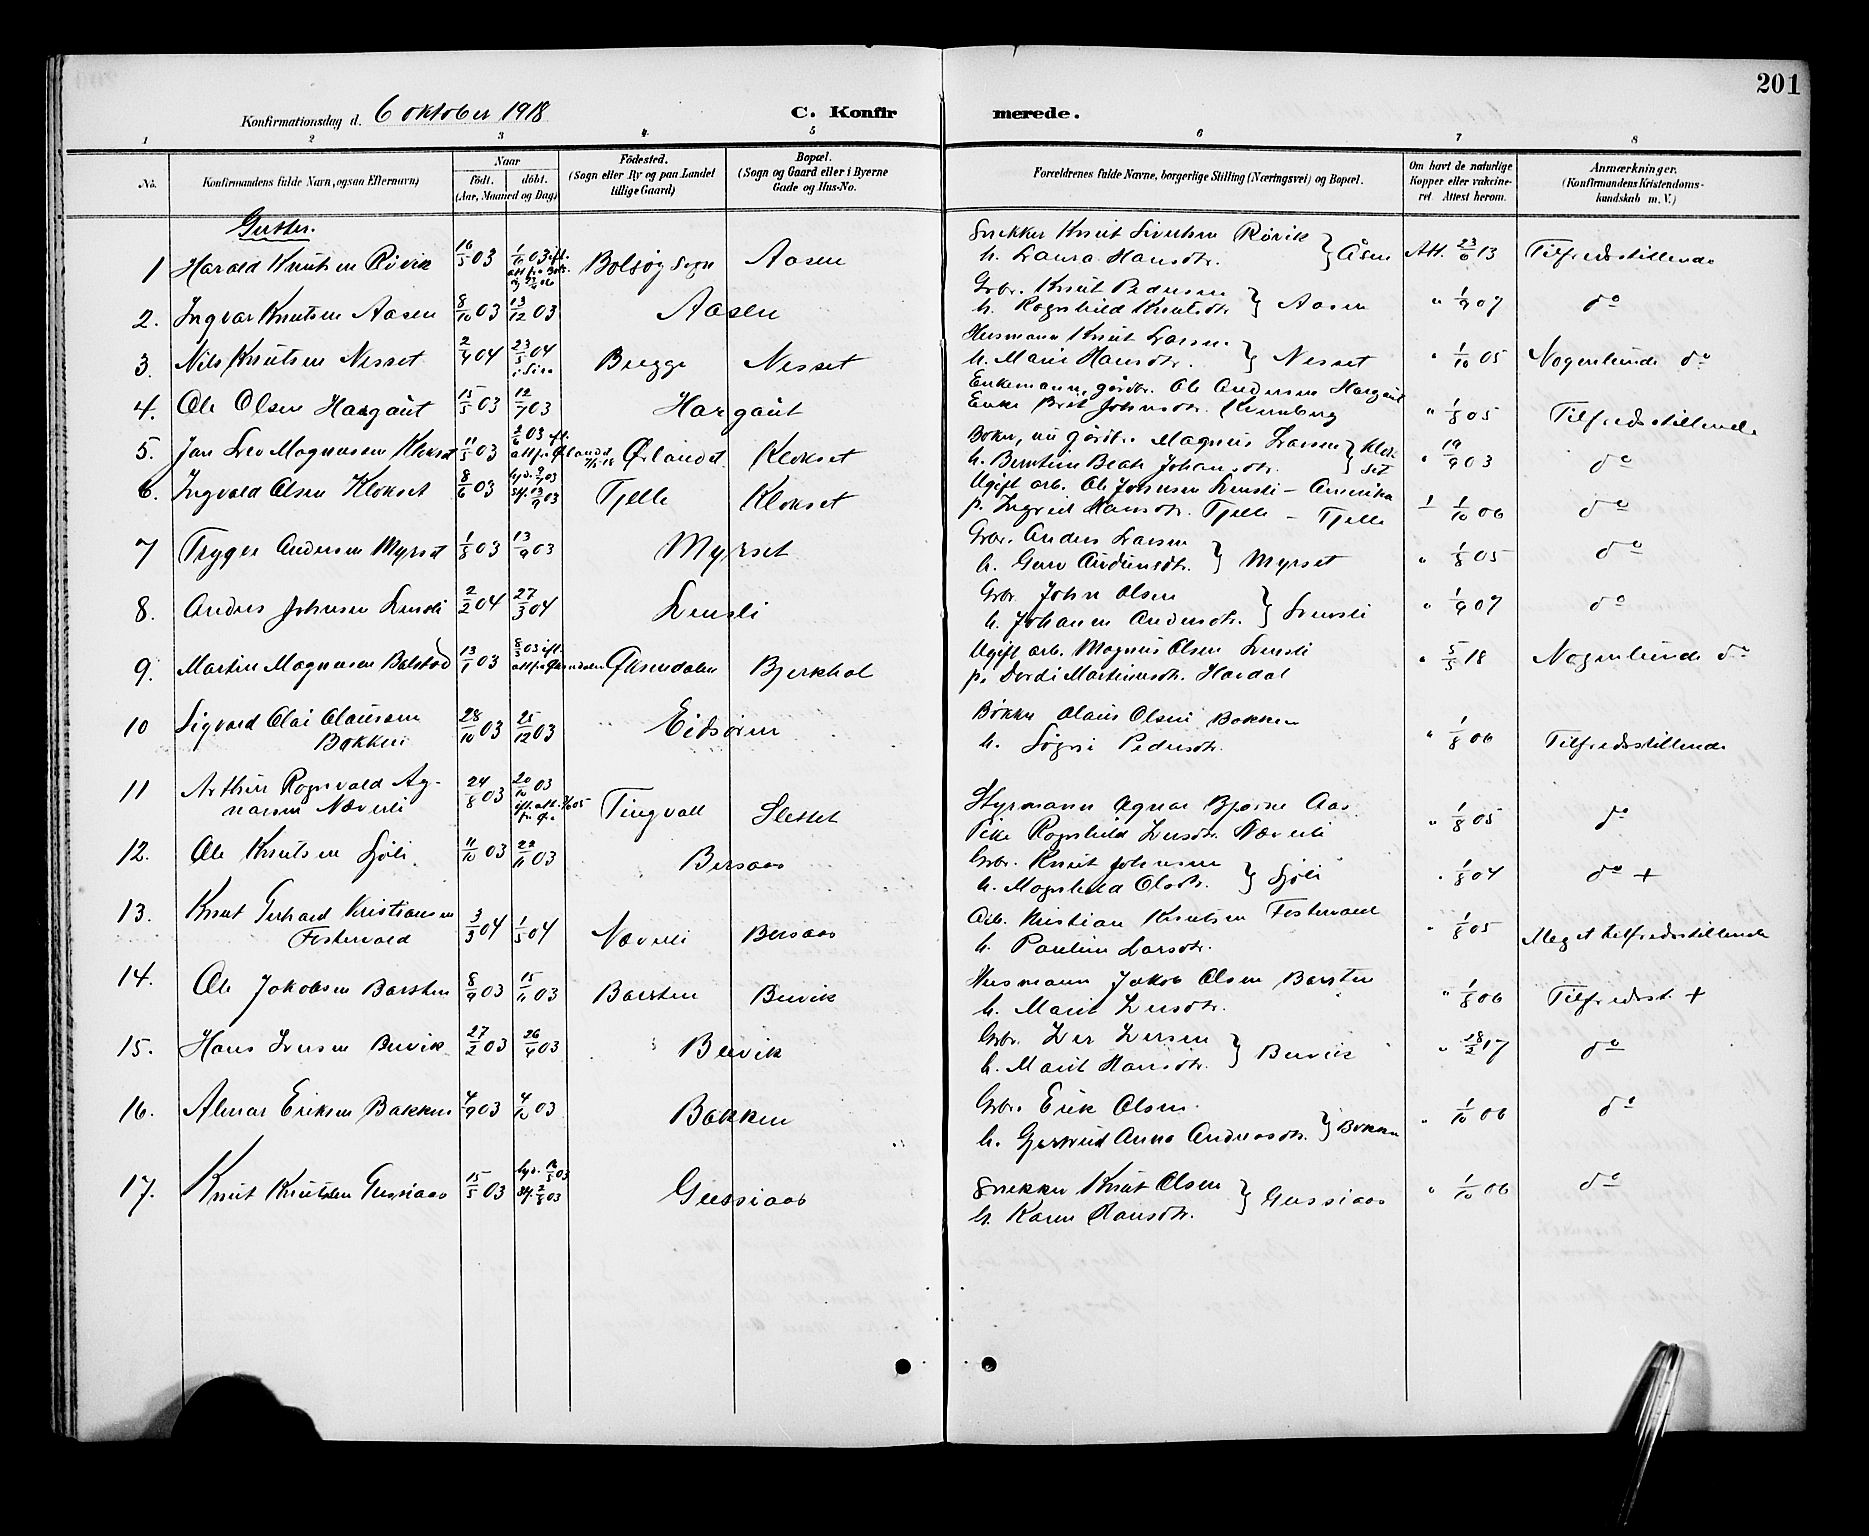 201
Konfirmationsdag d. 6 oktober 1918
C. Konfirmerede.
1 2 3 4 5 6 7 8
No. Konfirmandens fulde Navn, ogsaa Efternavn) Naar födt. döbt. (Aar, Maaned og Dag) Födested. (Sogn eller By og paa Landet tillige Gaard) Bopæl. (Sogn og Gaard eller i Byerne Gade og Hus-No. Forældrenes fulde Navne, borgerlige Stilling (Næringsvei) og Bopæl. Om havt de naturlige Kopper eller vakcineret Attest herom. Anmærkninger. (Konfirmandens Kristendomskundskab m. V.)
Gutter.
1 Harald Knutsen Rövik 16/5 03 Bolsøy Sogn Aasen Snekker Knut Sivertsen Rövik h. Laura Hansdtr. } Åsen Att. 23/6 13 Tilfredsstillende
2. Ingvar Knutsen Aasen 8/10 03 13/12 03 Aasen Gbr. Knut Pedersen h. Ragnhild Knutsdtr. } Aasen " 1/9 07 do
3. Nils Knutsen Nesset 2/4 04 23/5 04 Bugge Nesset Husmann Knut Larsen h. Marie Hansdtr. } Nesset " 1/10 05 Nogenlunde do
4. Ole Olsen Hargaut 15/5 03 12/7 03 Hargaut Enkemann, gårdbr. Ole Andersen Hargaut Enke Brit Johnsdtr. " 1/8 05 Tilfredsstillende
5. Jan Leo Magnussen Klokset 11/5 03 2/6 03 ifl. att. fra Ørlandet Ørlandet Klokset nu gårdbr. Magnus Larsen h. Beate Johansdtr. } Klokset " 19/9 03 do
6. Ingvald Olsen Klokset 8/6 03 Tjelle Klokset Ugift arb. Ole Johnsen Lensli - Amerika p. Ingrid Hansdtr. Tjelle - Tjelle " 1/10 06 do
7 Trygve Andersen Myrset 1/8 03 13/9 03 Myrset Gbr. Anders Larsen h. Guro Audunsdtr. } Myrset " 1/8 05 do
8. Anders Johnsen Lensli 2/2 04 27/3 04 Lensli Gbr. John Olsen h. Johanne Andersdtr. } Lensli " 1/9 07 do
9. Martin Magnussen Bolstad 13/1 03 8/3 03 ifl. att. fra Øksendalen Øksendalen Bjerkhol Ugift arb. Magnus Olsen Lensli p. Dordi Martinusdtr. Hardal " 5/5 18 Nogenlunde do
10 Sigvard Olai Olaussen Bakken 28/10 03 25/12 03 Eidsören Bökker Olaus Olsen Bakken h. Sögni Pedersdtr. " 1/8 06 Tilfredsstillende
11 Arthur Ragnvald Agnarsen Næverli 24/8 03 20/10 03 Tingvoll Slettet Styrmann Agnar Bjarne Aas Pike Ragnhild Larsdtr. Næverli " 1/8 05 do
12. Ole Knutsen Sjöli. 11/10 03 22/11 03 Bersaas Gbr. Knut Johnsen h. Magnhild Olsdtr. } Sjöli " 1/8 04 do +
13. Knut Gerhard Kristiansen Fostervold 3/3 04 1/5 04 Næverli Bersaas Arb. Kristian Knutsen Fostervold h. Pauline Larsdtr. " 1/8 05 Meget tilfredsstillende
14. Ole Jakobsen Barsten 8/9 03 15/11 03 Barsten Buvik Husmann Jakob Olsen Barsten h. Marit Iversdtr. " 1/8 06 Tilfredsst. +
15. Hans Iversen Buvik 27/2 03 26/4 03 Buvik Gbr. Iver Iversen h. Marit Hansdtr. } Buvik " 28/2 17 do
16. Almar Eriksen Bakken 4/9 03 4/10 03 Bakken Gbr. Erik Olsen. h. Gjertrud Anna Andreasdtr. } Bakken " 1/10 06 do
17. Knut Knutsen Gussiaas 15/5 03 Gussiaas Snekker Knut Olsen h. Karen Hansdtr. } Gussiaas " 1/10 06 do